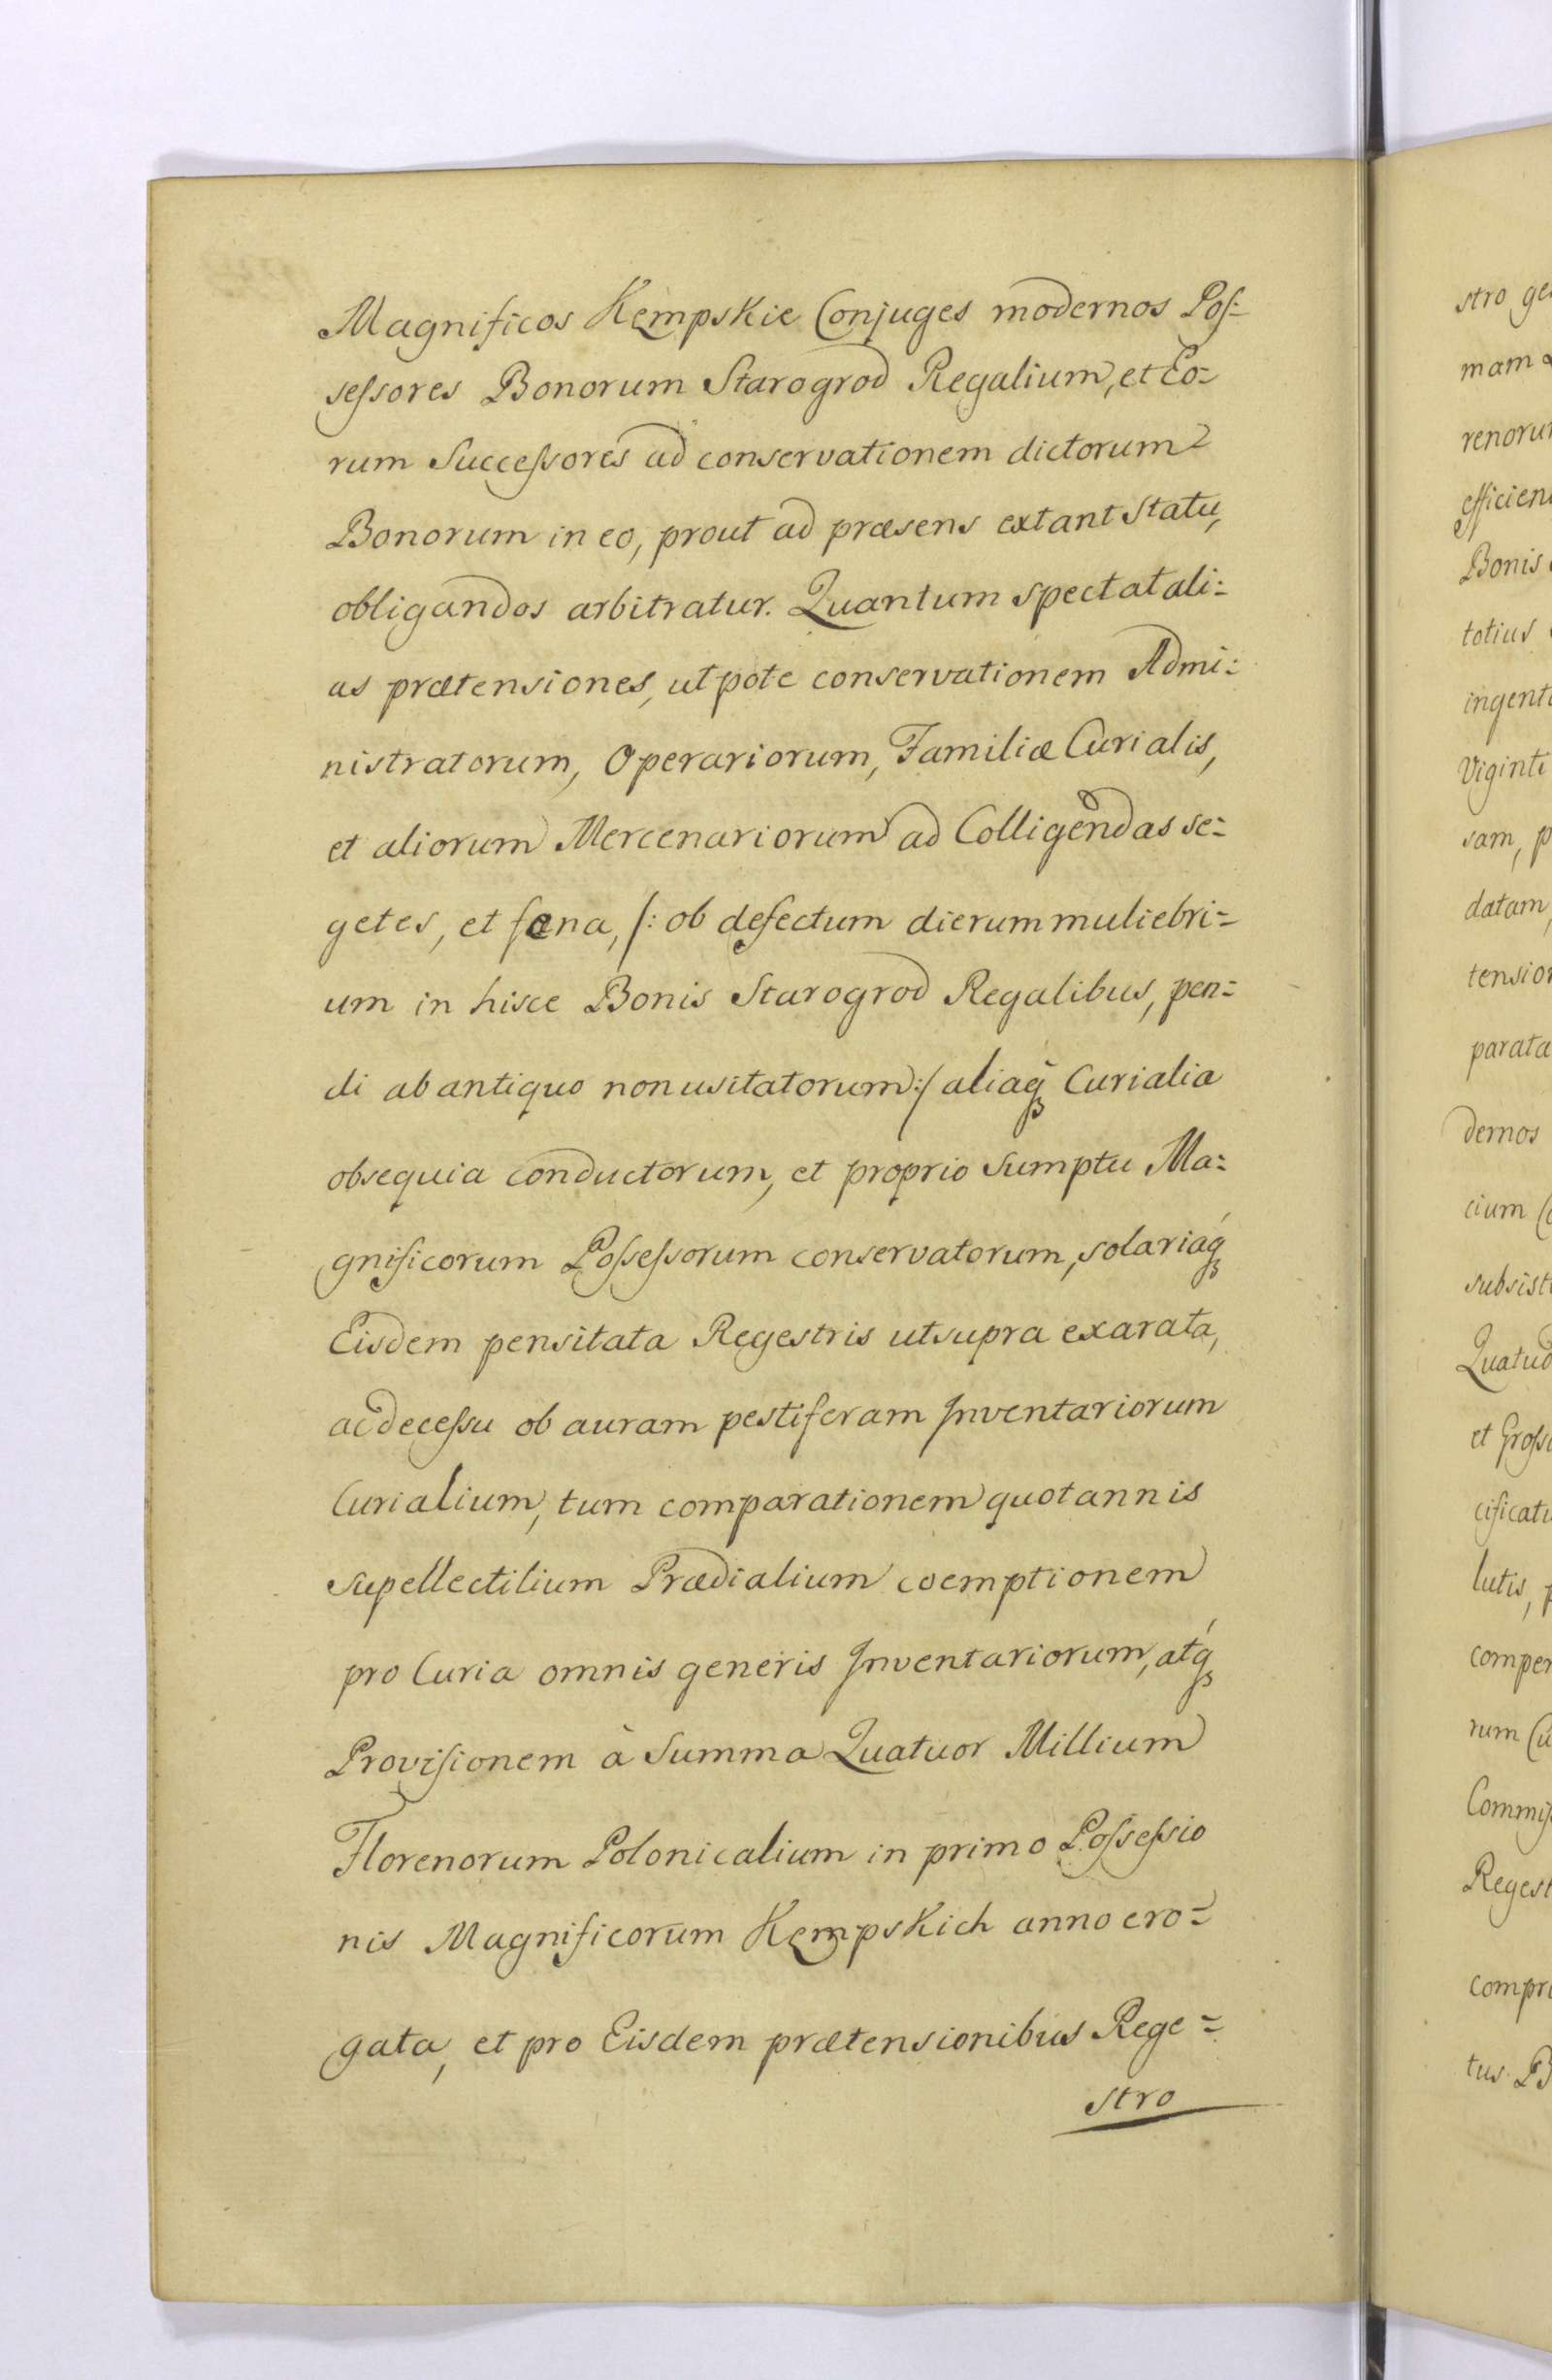 Magnificos Kempskie Conjuges modernos Pos=
sessores Bonorum Starogrod Regalium, et Eo=
rum Successores ad conservationem dictorum
Bonorum in eo, prout ad præsens extant statu,
obligandos arbitratur. Quantum spectat ali=
as prætensiones, utpote conservationem Admi=
nistratorum, Operariorum, Familiæ Curialis,
et aliorum Mercenariorum ad Colligendas se=
getes, et fœna, /: ob defectum dierum muliebri=
um in hisce Bonis Starogrod Regalibus, pen=
di ab antiquo non usitatorum :/ aliaq́ꝫ Curialia
obsequia conductorum, et proprio sumptu Ma=
gnificorum Possessorum conservatorum, solariaq́ꝫ
Eisdem pensitata Regestris ut supra exarata,
ac decessu ob auram pestiferam Inventariorum
Curialium, tum comparationem quotannis
supellectilium Prædialium coemptionem
pro Curia omnis generis Inventariorum, atq́ꝫ
Provisionem à Summa Quatuor Millium
Florenorum Polonicalium in primo Possessio
nis Magnificorum Kempskich anno ero=
gata, et pro Eisdem prætensionibus Rege=
stro
stro
mam
Bonis
totius
Viginti
sam,
datam,
parata
demos
cium
et
lutis,
rum
tus